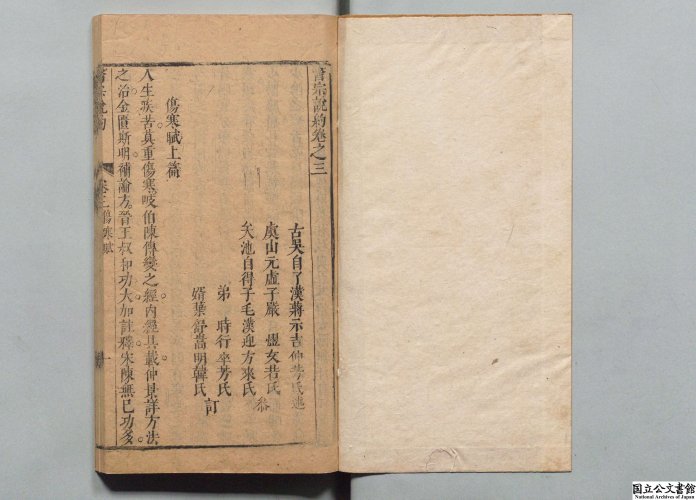 醫宗說約卷之三
古吳自了漢蔣示吉仲芳氏述
虞山元虛子嚴 煜文若氏
矢池自得子毛漢迎方來氏 叅
弟 時行卒芳氏
婿葉舒嵩明韓氏 訂
傷寒賦上篇
人生疾苦莫重傷寒岐伯陳傳變之經內經具載仲景詳方法
之治金匱斯明補論方晉王叔和功大加註釋宋陳無已功多
醫宗說約 卷三傷寒賦 一
国立公文書館
National Archives of Japan